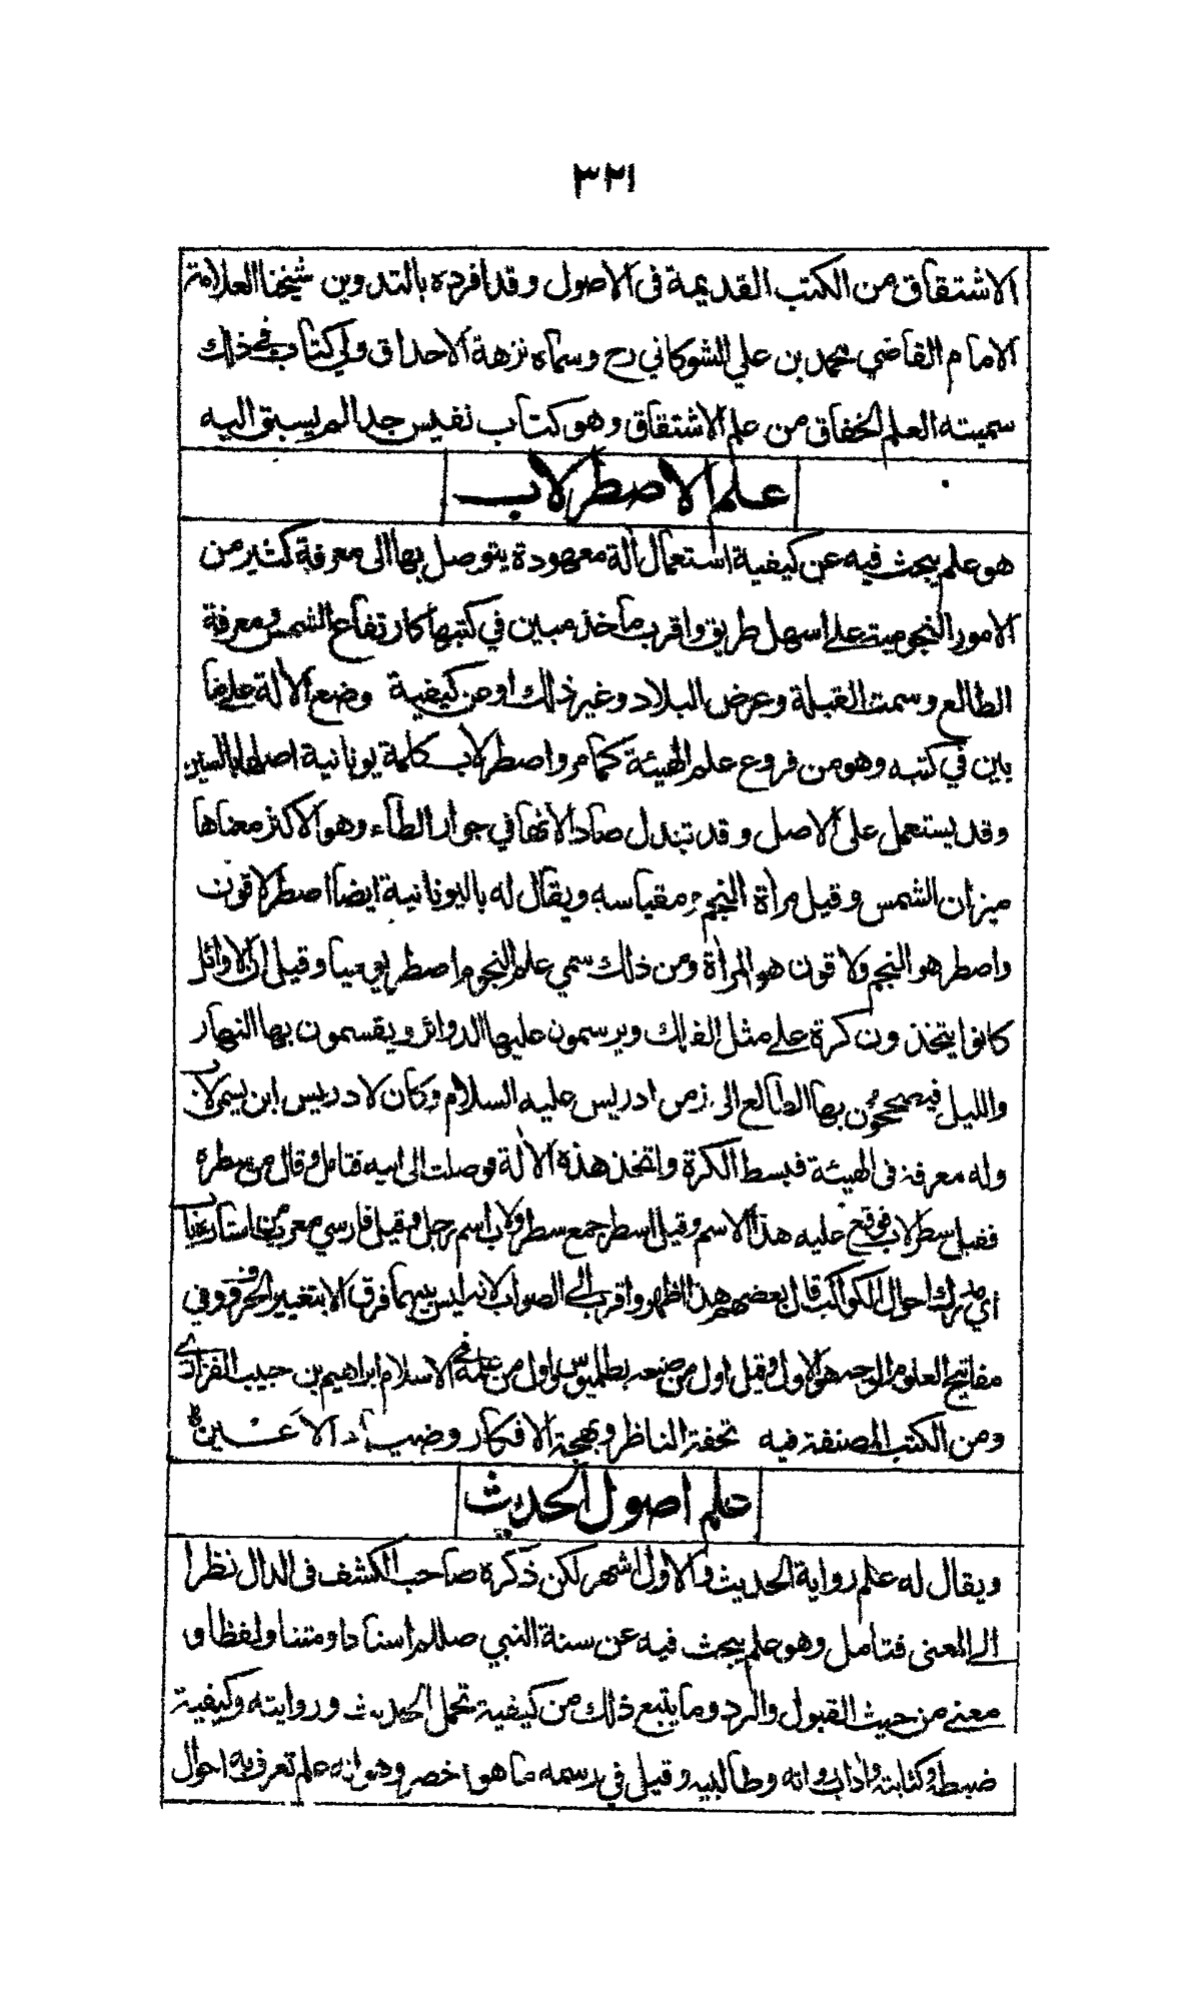 ٣٢١
الاشتقاق من الكتب القديمة فى الاصول وقد افرده بالتدوين شيخنا العلامة
الامام القاضي محمد بن علي الشوكاني رح وسماه نزهة الاحداق ولي كتاب في ذلك
سميته العلم الخفاق من علم الاشتقاق وهو كتاب نفيس جدا لم يسبق اليه
علم الاصطرلاب
هو علم يبحث فيه عن كيفية استعمال آلة معهودة يتوصل بها الى معرفة كثير من
الامور النجومية على اسهل طريق واقرب مأخذ مبين في كتبها كارتفاع الشمس ومعرفة
الطالع وسمت القبلة وعرض البلاد وغير ذلك او عن كيفية وضع الآلة على ما
بين في كتبه وهو من فروع علم الهيئة كما مر واصطرلاب كلمة يونانية اصلها بالسين
وقد يستعمل على الاصل وقد تبدل صادا لانها في جوار الطاء وهو الاكثر معناها
ميزان الشمس وقيل مرأة النجم ومقياسه ويقال له باليونانية ايضا اصطرلاقون
واصطر هو النجم ولاقون هو المرأة ومن ذلك سمي علم النجوم اصطريوميا وقيل ان الاوائل
كانوا يتخذون كرة على مثل الفلك ويرسمون عليها الدوائر ويقسمون بها النهار
والليل فيصححون بها الطالع الى زمن ادريس عليه السلام وكان لادريس ابن يسمى لاب
وله معرفة فى الهيئة فبسط الكرة واتخذ هذه الآلة فوصلت الى ابيه فتامل وقال من سطره
فقيل سطرلاب فوقع عليه هذا الاسم وقيل اسطر جمع سطر ولاب اسم رجل وقيل فارسي معرب من استاره ياب
اي مدرك احوال الكواكب قال بعضهم هذا اظهر واقرب الى الصواب لانه ليس بينهما فرق الا بتغيير الحروف وفي
مفاتيح العلوم الوجه هو الاول وقيل اول من صنعه بطليوس واول من عمله في الاسلام ابراهيم بن حبيب الفزاري
ومن الكتب المصنفة فيه تحفة الناظر وبهجة الافكار وضياء الاعين
علم اصول الحديث
ويقال له علم رواية الحديث والاول اشهر لكن ذكره صاحب الكشف فى الدال نظرا
الى المعنى فتامل وهو علم يبحث فيه عن سنة النبي صللم اسنادا ومتنا ولفظا و
معنى من حيث القبول والرد وما يتبع ذلك من كيفية تحمل الحديث وروايته وكيفية
ضبطه وكتابته واداب رواته وطالبيه وقيل في رسمه ما هو اخصر وهو انه علم تعرف به احوال